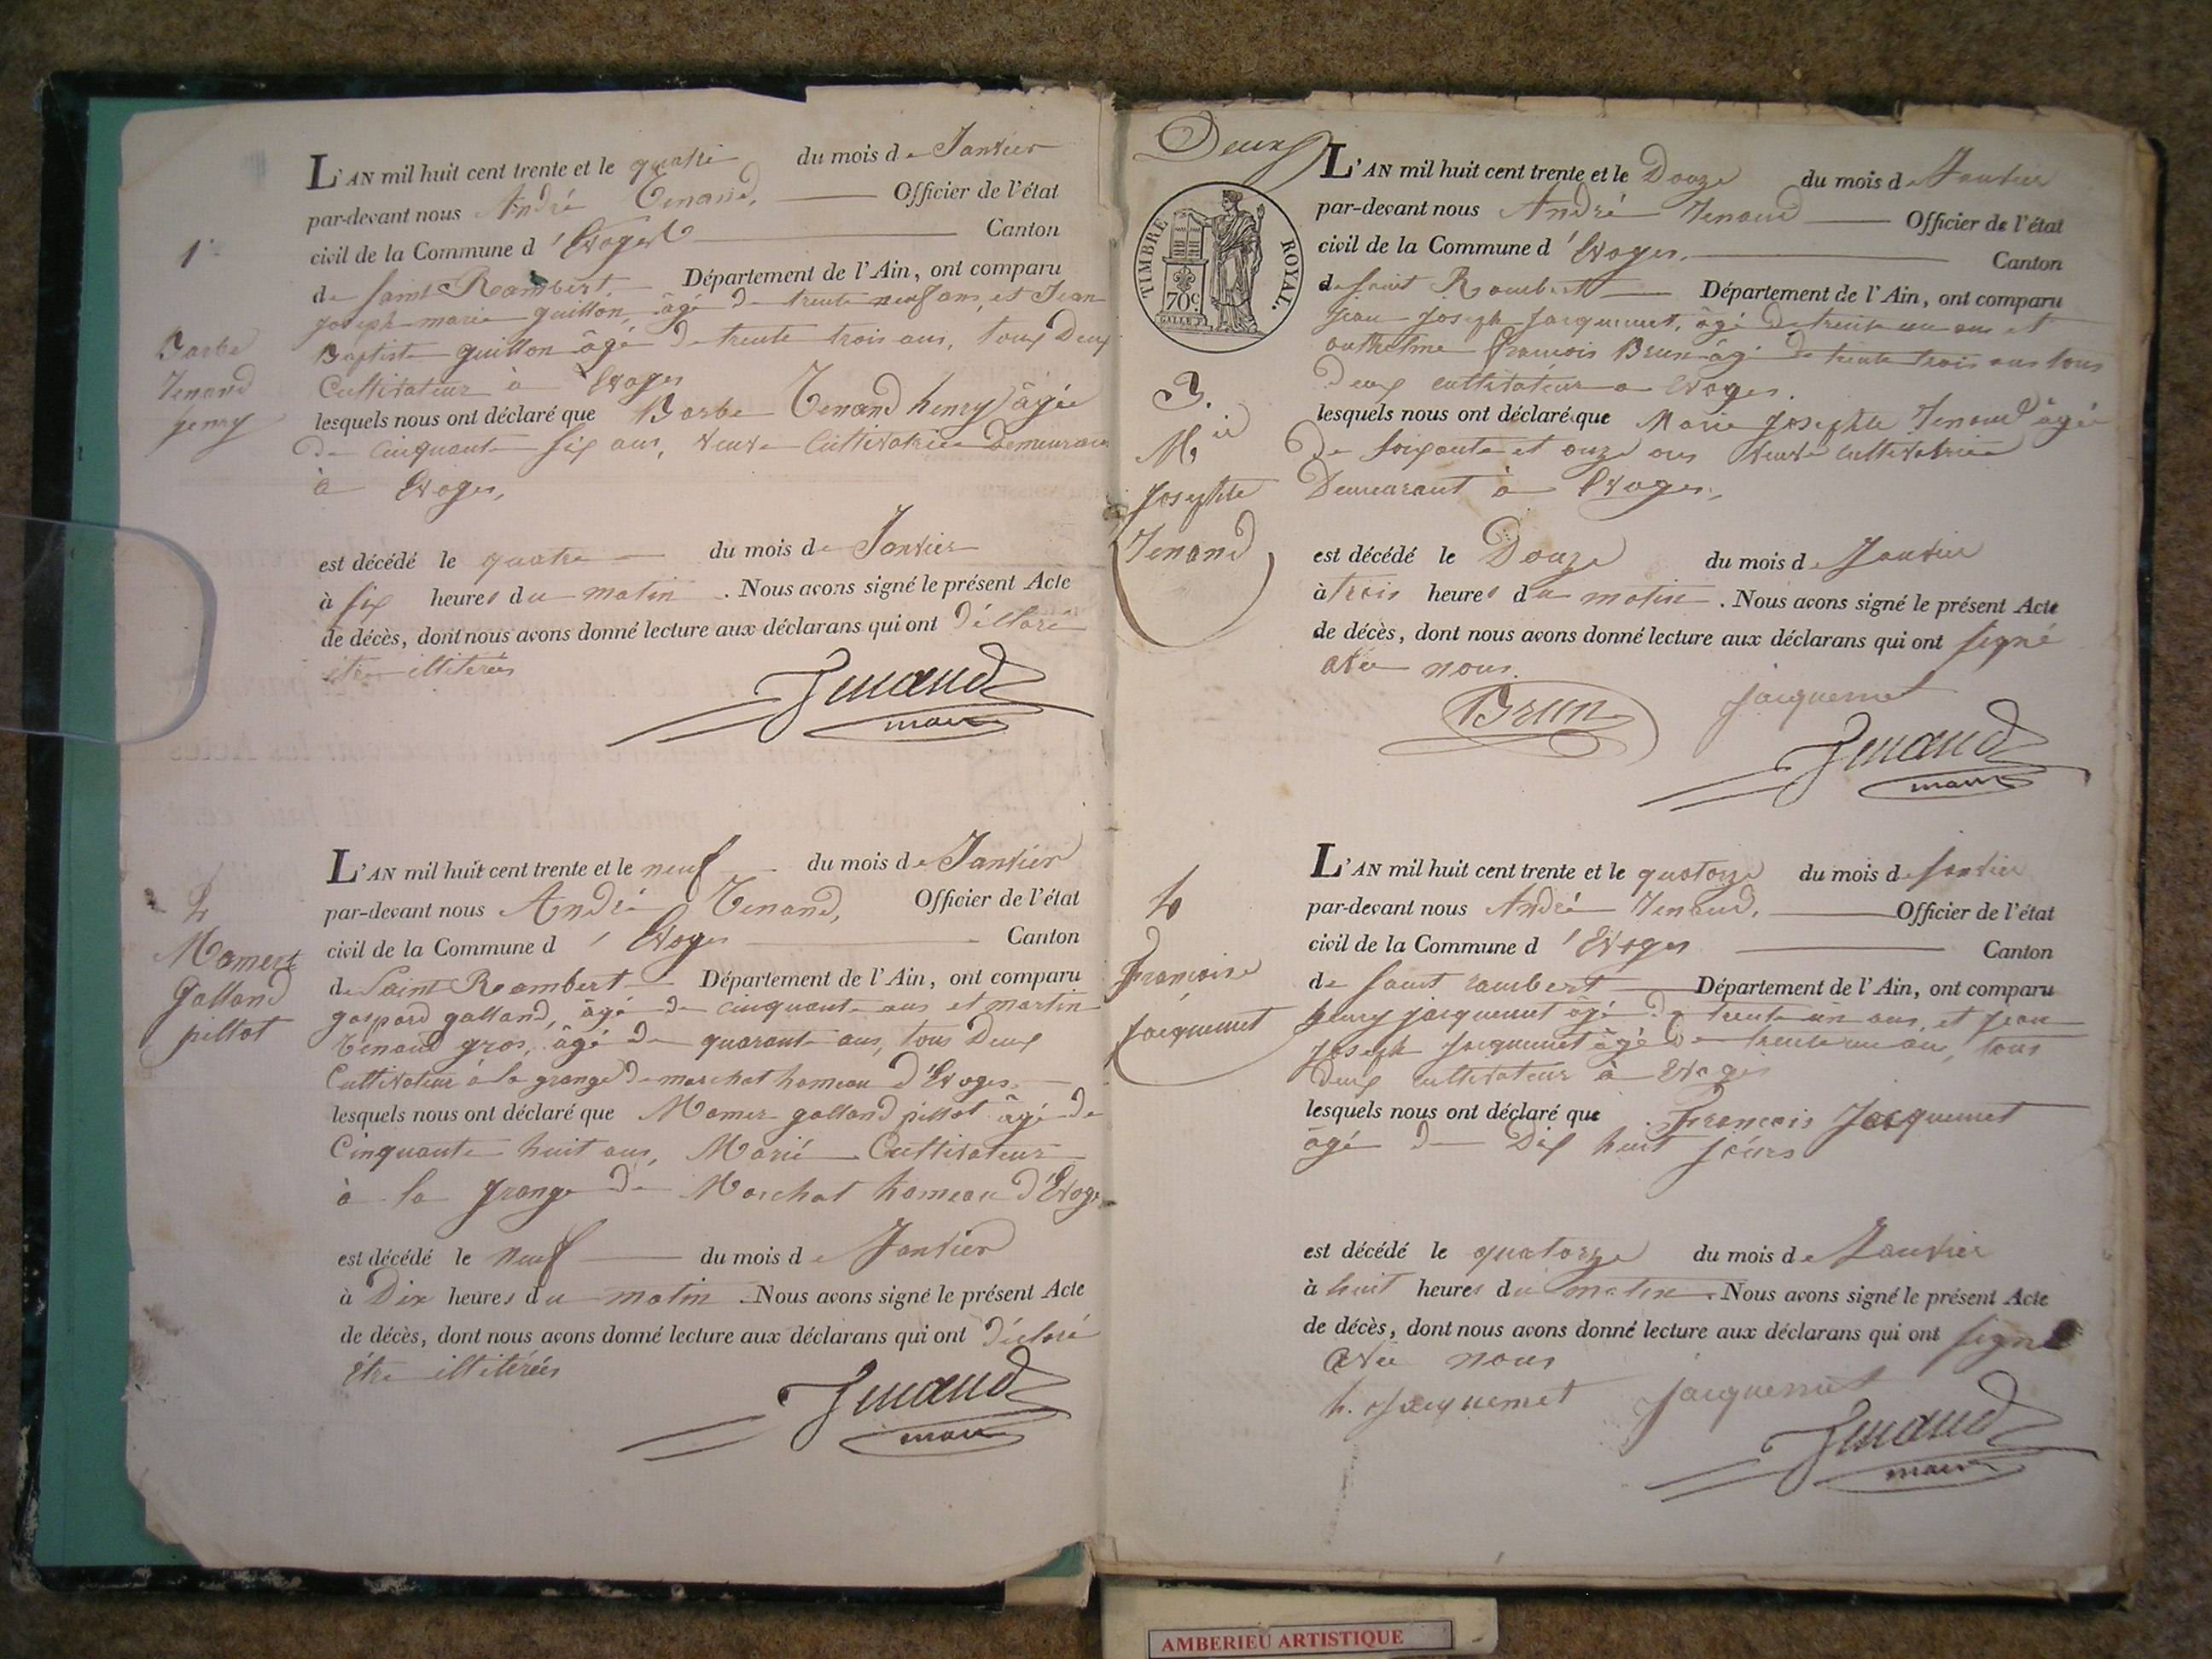 1.
Barbe
Tenand
henry
L'AN mil huit cent trente et le quatre du mois de Janvier
par-devant nous André Tenand, Officier de l'état
civil de la Commune d'Evoges Canton
de Saint Rambert. Département de l'Ain, ont comparu
Joseph marie guillon, âgé de trente neuf ans, et Jean
Baptiste guillon âgé de trente trois ans, tous Deux
Cultivateur à Evoges
lesquels nous ont déclaré que Barbe Tenand henry âgée
De cinquante six ans, veuve Cultivatrice Demeurant
à Evoges,
est décédé le quatre du mois de Janvier
à six heures du matin. Nous avons signé le présent Acte
de décès, dont nous avons donné lecture aux déclarans qui ont déclaré
être illitérés
Tenand
maire
2
Mamert
galland
pillot
L'AN mil huit cent trente et le neuf du mois de Janvier
par-devant nous André Tenand, Officier de l'état
civil de la Commune d'Evoges Canton
de Saint Rambert Département de l'Ain, ont comparu
gaspard galland, âgé de cinquante ans et martin
Tenand gros, âgé de quarante ans, tous Deux
Cultivateur à la grange de marchat hameau d'Evoges.
lesquels nous ont déclaré que Mamer galland pillot âgé de
Cinquante huit ans, Marié Cultivateur
à la grange de Marchat hameau d'Evoges
est décédé le neuf du mois de Janvier
à Dix heures du matin. Nous avons signé le présent Acte
de décès, dont nous avons donné lecture aux déclarans qui ont déclaré
être illitérés
Tenand
maire
Deux
TIMBRE ROYAL.
70c
3.
Mie
Josephte
Tenand
L'AN mil huit cent trente et le Douze du mois de Janvier
par-devant nous André Tenand Officier de l'état
civil de la Commune d'Evoges. Canton
de saint Rambert Département de l'Ain, ont comparu
Jean Joseph Jacquemet, âgé de trente un ans et
anthelme francois Brun âgé de trente trois ans tous
Deux cultivateur a Evoges.
lesquels nous ont déclaré que Marie Josephte Tenand âgée
De soixante et onze ans Veuve cultivatrice
Demeurant à Evoges,
est décédé le Douze du mois de Janvier
à trois heures du matin. Nous avons signé le présent Acte
de décès, dont nous avons donné lecture aux déclarans qui ont signé
avec nous.
Brun Jacquemet
Tenand
maire
4
françoise
Jacquemet
L'AN mil huit cent trente et le quatorze du mois de Janvier
par-devant nous André Tenand, Officier de l'état
civil de la Commune d'Evoges Canton
de saint rambert Département de l'Ain, ont comparu
henry jacquemet âgé de trente un ans, et jean
joseph Jacquemet âgé de trente un ans, tous
Deux cultivateur à Evoges
lesquels nous ont déclaré que francois Jacquemet
âgé de Dix huit jours
est décédé le quatorze du mois de Janvier
à huit heures du matin. Nous avons signé le présent Acte
de décès, dont nous avons donné lecture aux déclarans qui ont signé
avec nous
h. Jacquemet Jacquemet
Tenand
maire
AMBERIEU ARTISTIQUE